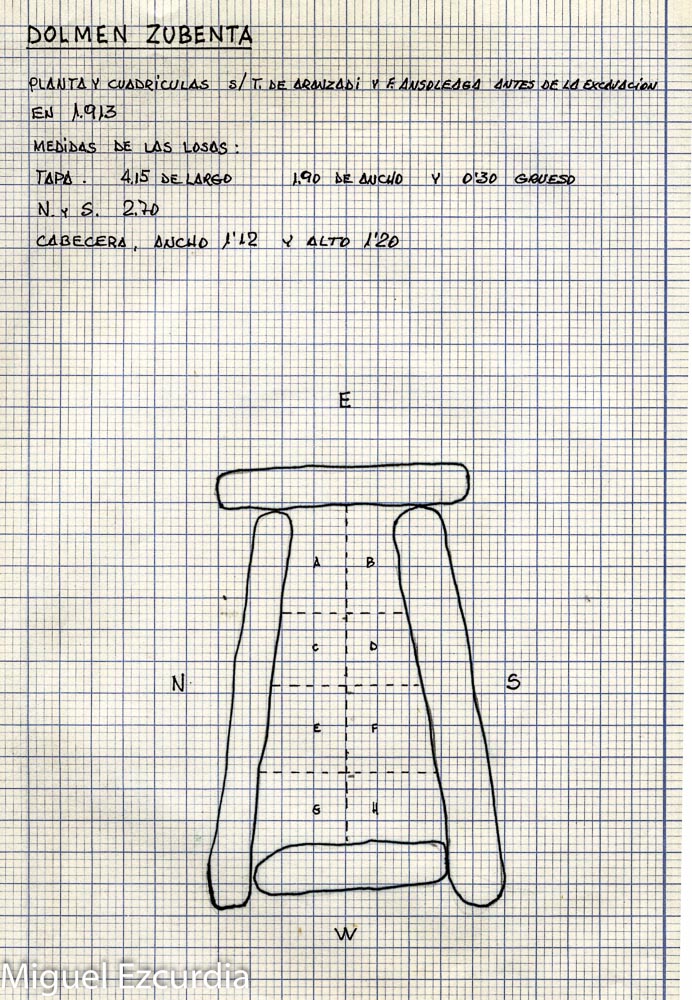 DOLMEN ZUBENTA
PLANTA Y CUADRÍCULAS S/ T. DE ARANZADI Y F. ANSOLEAGA ANTES DE LA EXCAVACIÓN
EN 1.913
MEDIDAS DE LAS LOSAS:
TAPA. 4,15 DE LARGO 1,90 DE ANCHO Y 0'30 GRUESO
N. Y S. 2,70
CABECERA, ANCHO 1'12 Y ALTO 1'20
E
A B
C D
N. S
E F
G H
W
Miguel Ezcurdia